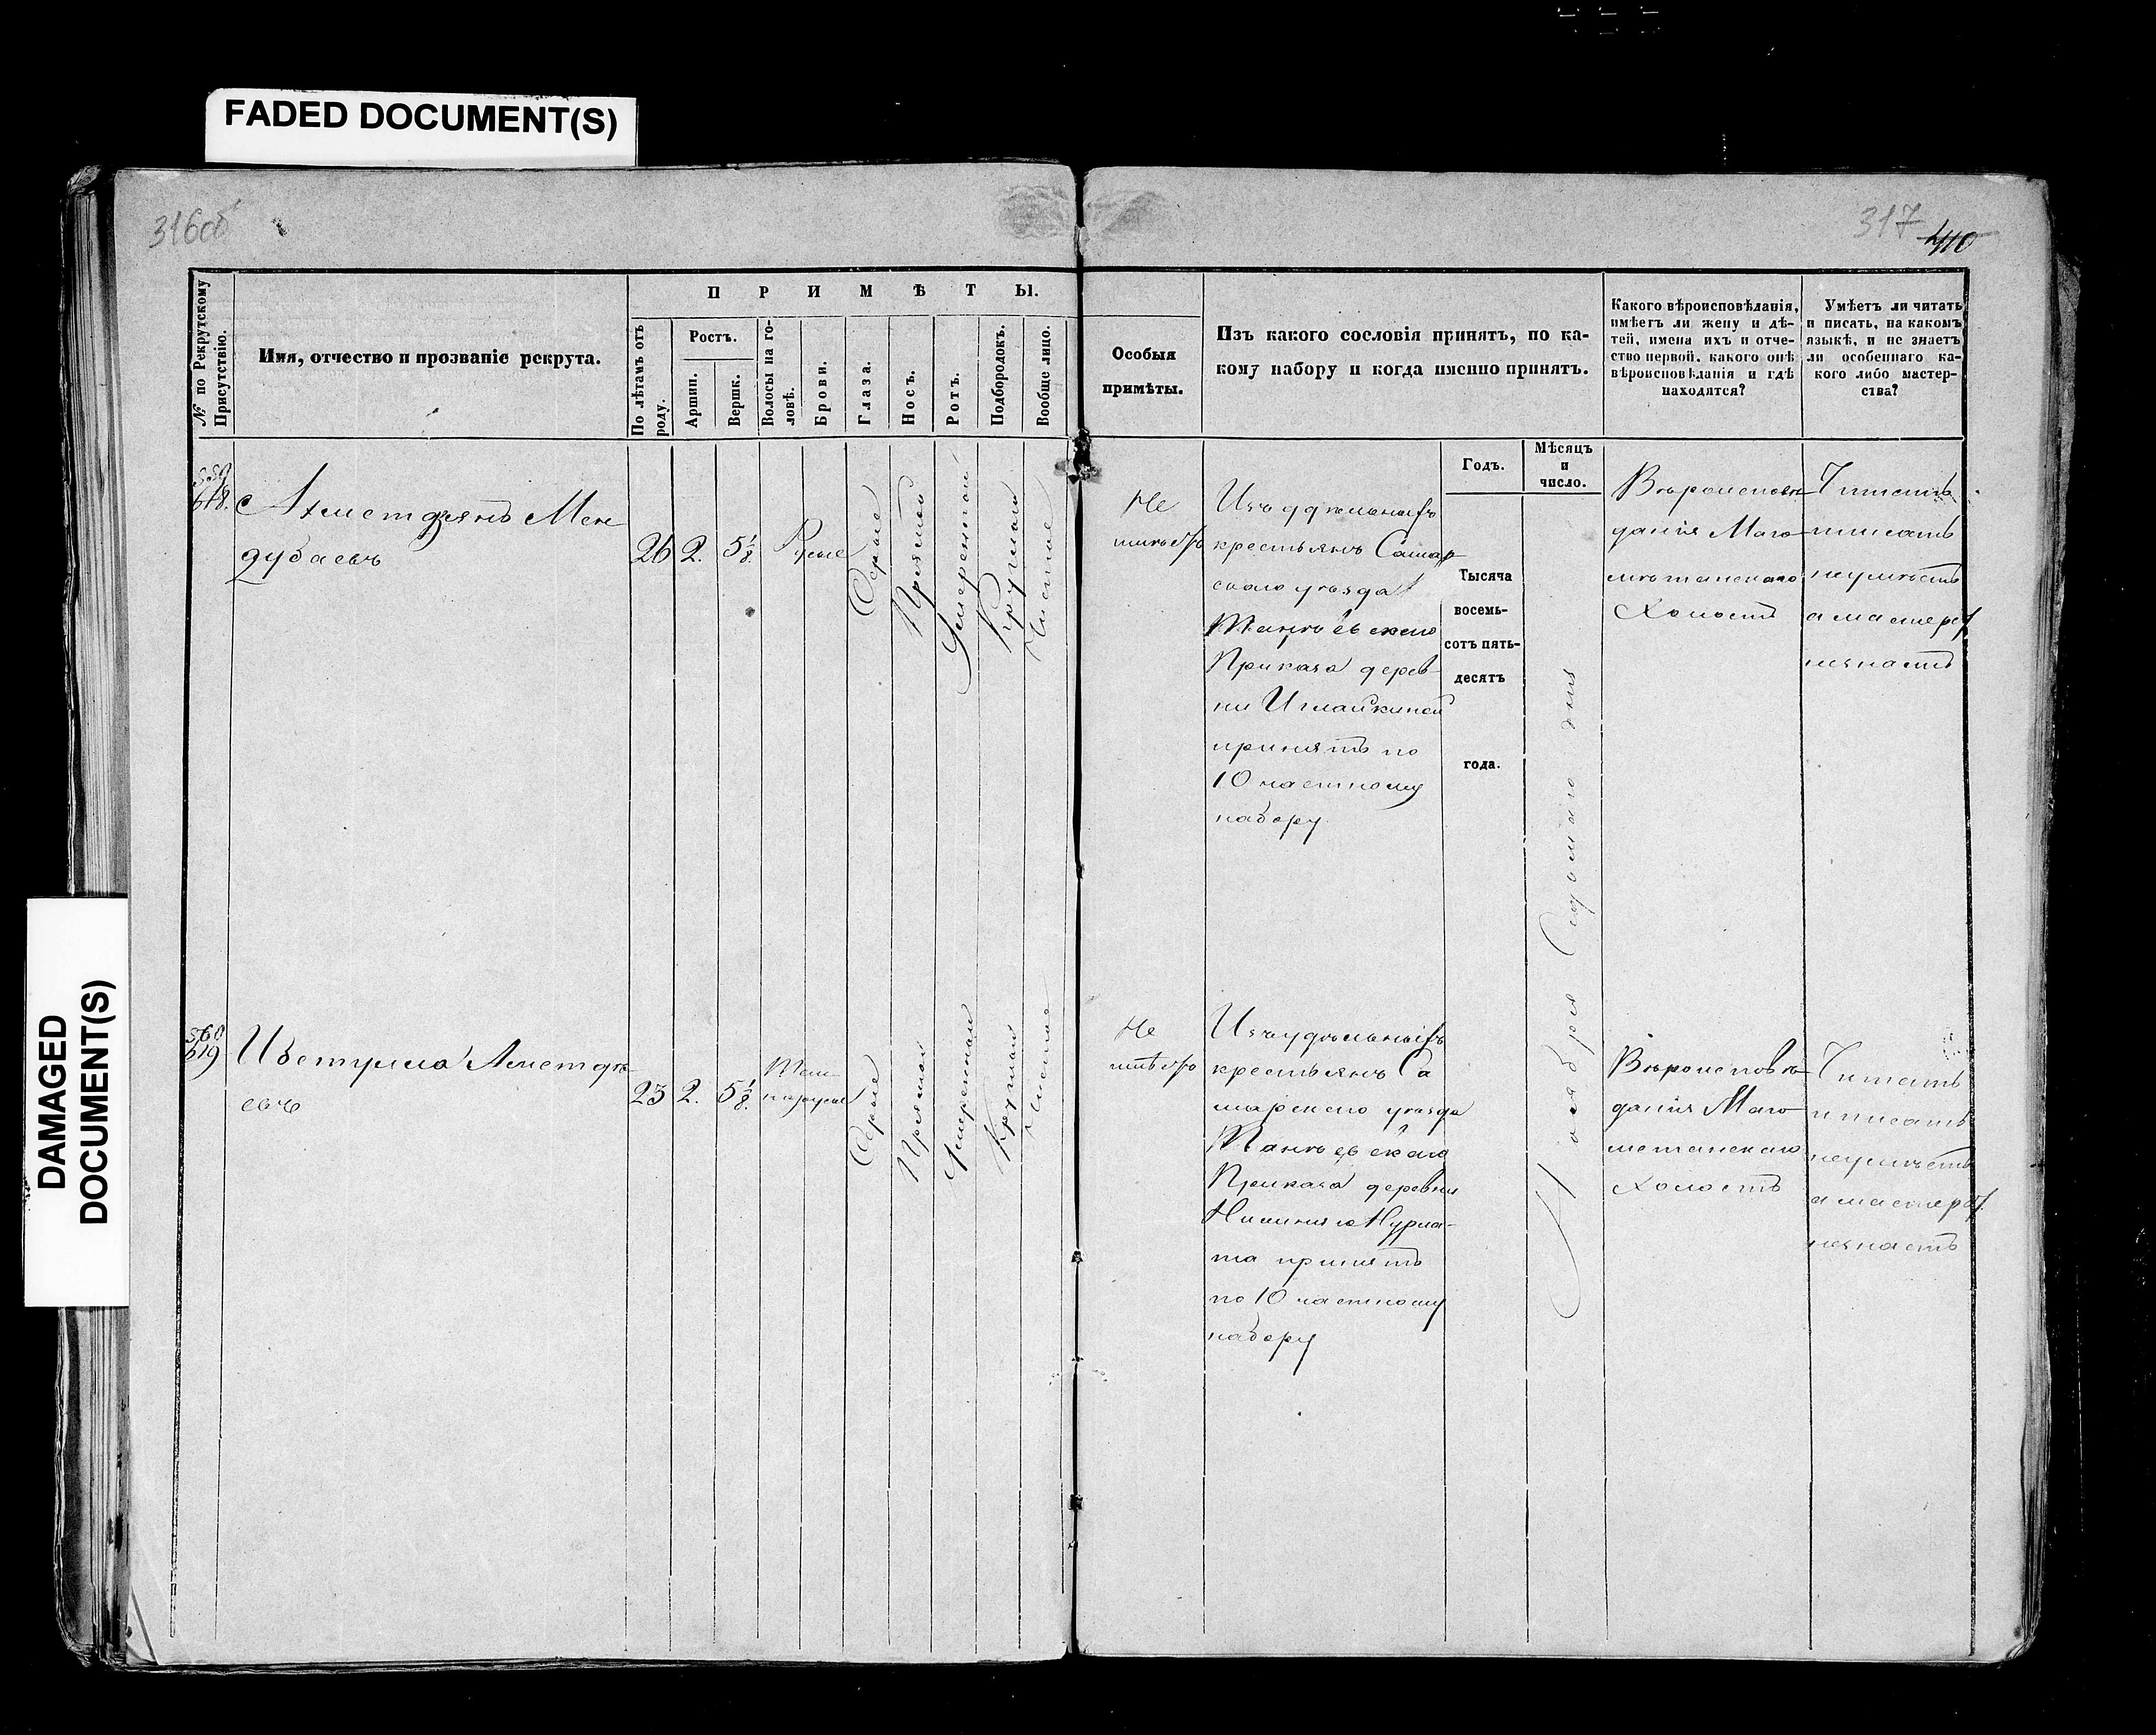 FADED DOCUMENT(S)
DAMAGED
DOCUMENT(S)
316об
317
410
№ по Рекрутскому
Присутствію.
Имя, отчество и прозваніе рекрута.
ПРИМѢТЫ.
По лѣтамъ отъ
роду.
Ростъ.
Аршин.
Вершк.
Волосы на го-
ловѣ.
Брови.
Глаза.
Носъ.
Ротъ.
Подбородокъ.
Вообще лицо.
Особыя
примѣты.
Изъ какого сословія принятъ, по ка-
кому набору и когда именно принятъ.
Какого вѣроисповѣданія,
имѣетъ ли жену и дѣ-
тей, имена ихъ и отче-
ство первой, какого онѣ
вѣроисповѣданія и гдѣ
находятся?
Умѣетъ ли читать
и писать, на какомъ
языкѣ, и не знаетъ
ли особеннаго ка-
кого либо мастер-
ства?
Годъ.
Мѣсяцъ
и
число.
559
618.
Ахметзянъ Мен
дубаевъ
26
2.
5 1/8.
Русые
Серые
Прямой
Умеренной
Круглой
Чистое
Не
имѣетъ
Изъ удѣльныхъ
крестьянъ Самар
скаго уѣзда
Приказа дерев
ни
принятъ по
10 частному
набору
Тысяча
восемь-
сотъ пять-
десятъ
года.
Ноября Седьмаго дня
Вѣроисповѣ
данія Маго
метанскаго
Холостъ
Читать
писать
неумѣетъ
а мастерст.
незнаетъ
560
619
23
2.
5 1/8.
Тем
норусые
Серые
Прямой
Умеренной
Круглой
Чистое
Не
имѣетъ
Изъ удѣльныхъ
крестьянъ Са
марскаго уѣзда
Приказа деревни
принятъ
по 10 частному
набору
Вѣроисповѣ
данія Маго
метанскаго
Холостъ
Читать
и писать
неумѣетъ
а мастерст.
незнаетъ